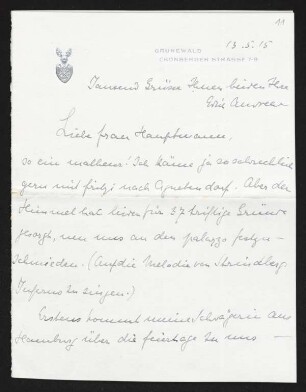 11
GRUNEWALD
13. 5. 15
Tausend Grüsse Ihnen beiden Ihre
Liebe frau Hauptmann,
so ein malheur! Ich käme ja so schrecklich
gern mit fritzi nach Agnetendorf. Aber der
Himmel hat hierfür 27 kräftige Gründe
gesorgt, um uns an den palazzo festzu-
schmieden. (Auf die Melodie von Strindberg
Inferno zu singen!)
Erstens kommt meine Schwägerin aus
Hamburg über die feiertage zu uns —